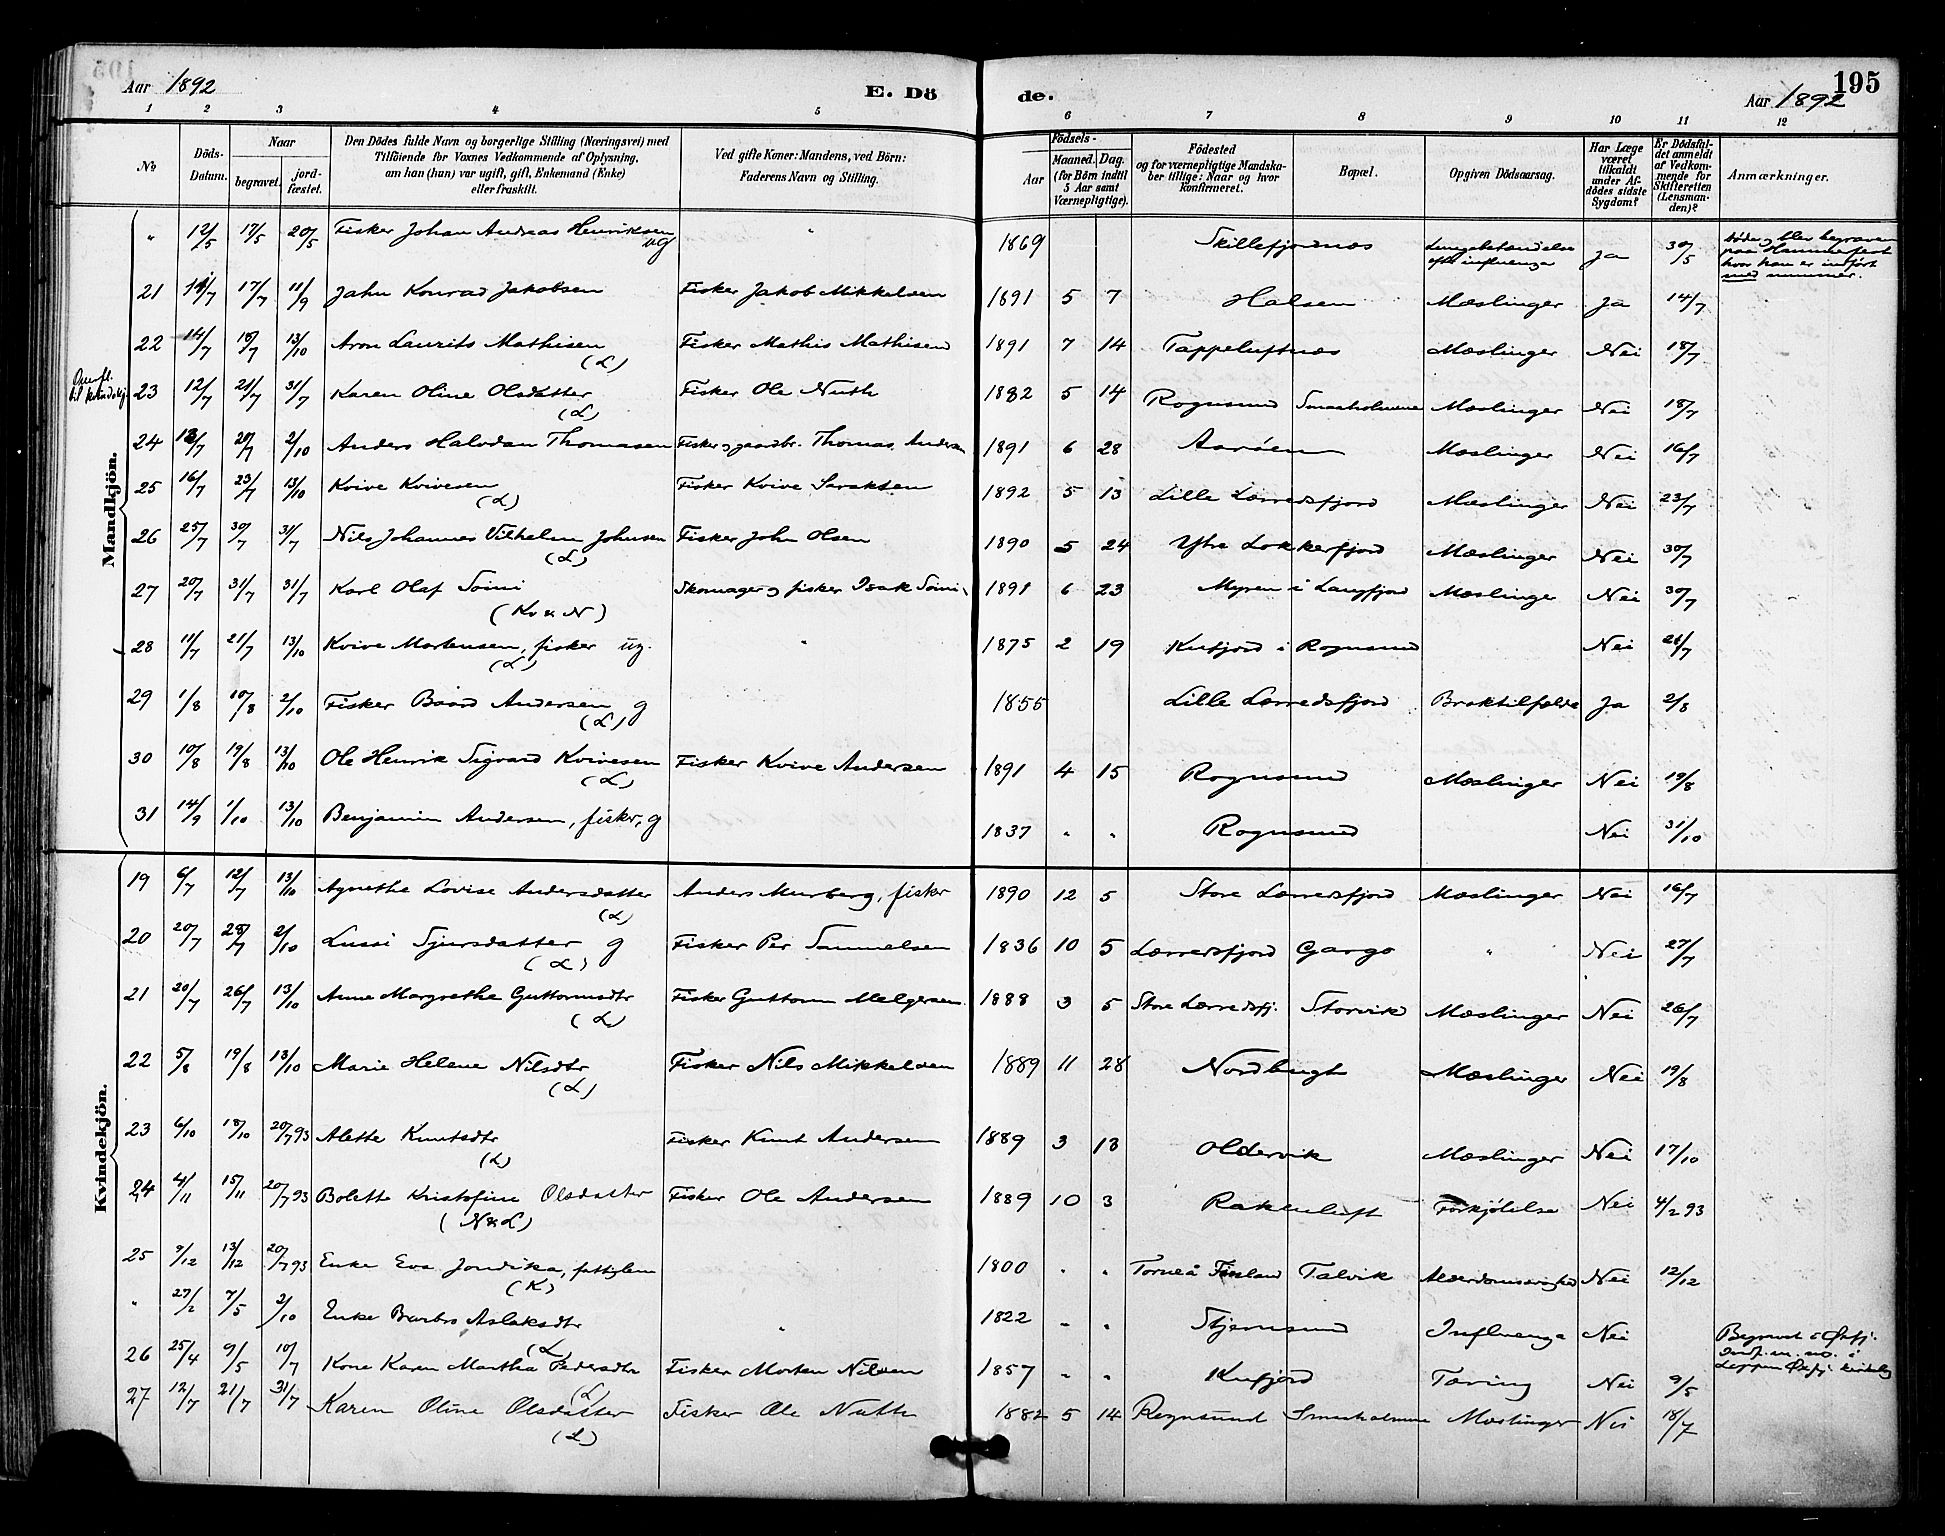 195
Aar 1892 E. Dö de. Aar 1892
1 2 3 4 5 6 7 8 9 10 11 12
No
Döds-Datum.
Naar
begravet.
jordfæstet.
Den Dödes fulde Navn og borgerlige Stilling (Næringsvei) med
Tilföiende for Voxnes Vedkommende af Oplysning,
om han (hun) var ugift, gift, Enkemand (Enke)
eller fraskilt.
Ved gifte Koner: Mandens, ved Börn:
Faderens Navn og Stilling.
Födsels-
Aar
Maaned. Dag.
(for Börn indtil
5 Aar samt
Værnepligtige).
Födested
og for værnepligtige Mandskaber tillige: Naar og hvor
Konfirmeret.
Bopæl.
Opgiven Dödsaarsag.
Har Læge
været
tilkaldt
under Afdödes sidste
Sygdom?
Er Dödsfaldet anmeldt
af Vedkommende for
Skifteretten
(Lensmanden)?
Anmærkninger.
Mandkjön.
" 12/5 17/5 20/5 Fisker Johan Andreas Henriksen ug " 1869 Skillefjordnæs Lungebetændelse efter influenza Ja 30/5 Døde og blev begraven paa Hammerfest hvor han er indført med nummer.
21 14/7 17/7 11/9 Jahn Konrad Jakobsen Fisker Jakob Mikkelsen 1891 5 7 Halsen Mæslinger Ja 14/7
22 14/7 18/7 13/10 Aron Laurits Mathisen (L) Fisker Mathis Mathisen 1891 7 14 Tappeluftnæs Mæslinger Nei 18/7
Overfl. til kvindekj
23 12/7 21/7 31/7 Karen Oline Olsdatter (L) Fisker Ole Nuth 1882 5 14 Rognsund Smaaholmene Mæslinger Nei 18/7
24 12/7 20/7 2/10 Anders Halvdan Thomasen Fisker og gaardbr. Thomas Andersen 1891 6 28 Aarøen Mæslinger Nei 16/7
25 16/7 23/7 13/10 Kvive Kvivesen (L) Fisker Kvive Isaksen 1892 5 13 Lille Lærredsfjord Mæslinger Nei 23/7
26 25/7 30/7 31/7 Nils Johannes Vilhelm Johnsen (L) Fisker John Olsen 1890 5 24 Ytre Lokkerfjord Mæslinger Nei 30/7
27 20/7 31/7 31/7 Karl Olaf Soini (Kv & N) Skomager og fisker Isak Soini 1891 6 23 Myren i Langfjord Mæslinge Nei 30/7
28 11/7 21/7 13/10 Kvive Mortensen, fisker ug. (L) " 1875 2 19 Kufjord i Rognsund Nei 21/7
29 1/8 10/8 2/10 Fisker Baard Andersen g (L) 1855 Lille Lærredsfjord Braktilfælde Ja 2/8
30 10/8 19/8 13/10 Ole Henrik Sigvard Kvivesen (L) Fisker Kvive Andersen 1891 4 15 Rognsund Mæslinger Nei 19/8
31 14/9 1/10 13/10 Benjamin Andersen, fisker, g 1837 " " Rognsund Nei 31/10
Kvindekjön.
19 6/7 12/7 13/10 Agnethe Lovise Andersdatter (L) Anders Murberg, fisker 1890 12 5 Store Lærredsfjord Mæslinger Nei 16/7
20 20/7 28/7 2/10 Lussi Sjursdatter g (L) Fisker Per Samuelsen 1836 10 5 Lærredsfjord Gargo " Nei 27/7
21 20/7 26/7 13/10 Anne Margrethe Guttormsdtr (L) Fisker Guttorm Melgersen 1888 3 5 Store Lærredsfj. Storvik Mæslinger Nei 26/7
22 5/8 19/8 13/10 Marie Helene Nilsdtr (L) Fisker Nils Mikkelsen 1889 11 28 Nordbugt Mæslinger Nei 19/8
23 6/10 18/10 20/7 93 Alette Knutsdtr (L) Fisker Knut Andersen 1889 3 13 Oldervik Mæslinger Nei 17/10
24 4/11 15/11 20/7 93 Bolette Kristofine Olsdatter (N & L) Fisker Ole Andersen 1889 10 3 Rakkeluft Forkjølelse Nei 4/2 93
25 9/12 13/12 20/7 93 Enke Eva Jondika, fattiglem (K) 1800 " " Torneå Finland Talvik Alderdomssvaghed Nei 12/12
" 27/2 7/5 2/10 Enke Barbro Aslaksdtr (L) " 1822 " " Stjernsund Influenza Nei Begravet i Øxfj.
26 25/4 9/5 10/7 Kone Karen Martha Pedersdtr (L) Fisker Morten Nilsen 1857 " " Kufjord Tæring Nei 9/5
27 12/7 21/7 31/7 Karen Oline Olsdatter (L) Fisker Ole Nutth 1882 5 14 Rognsund Smaaholmene Mæslinger Nei 18/7